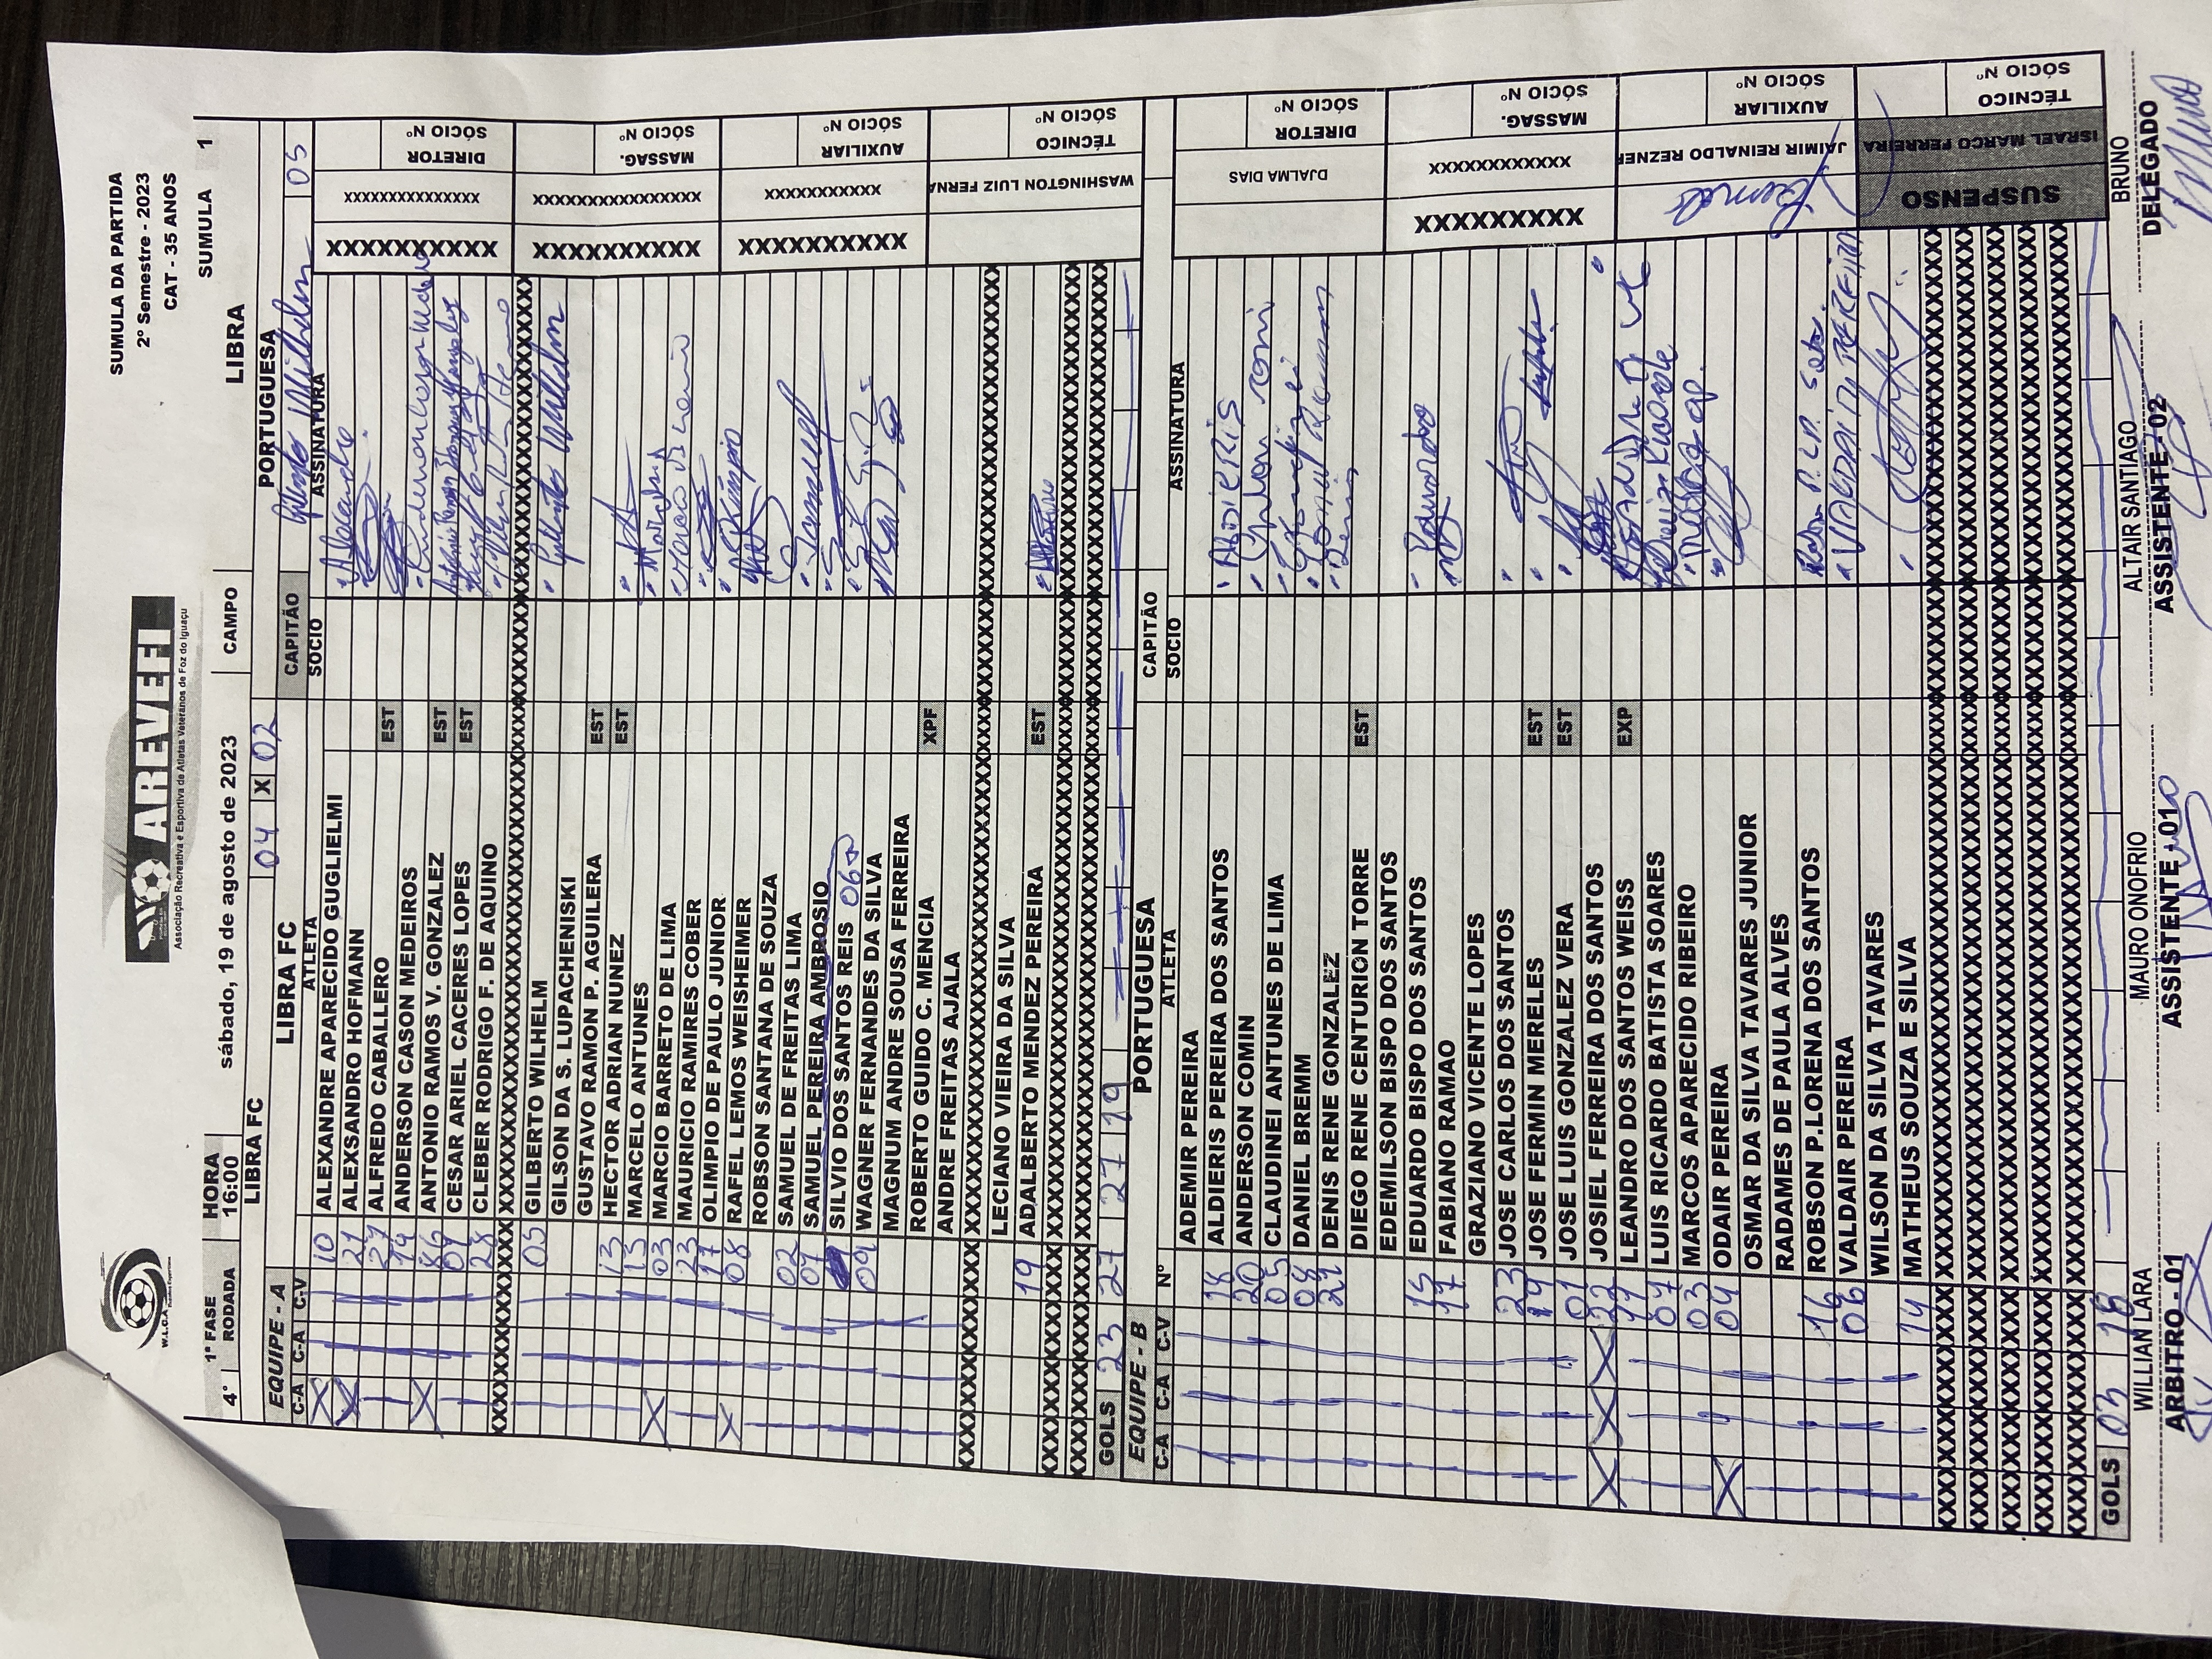 W.L.C.A.
AREVEFI
Associação Recreativa e Esportiva de Atletas Veteranos de Foz do Iguaçu
SUMULA DA PARTIDA
2º Semestre - 2023
CAT - 35 ANOS
4ª 1ª FASE HORA
RODADA 16:00 sábado, 19 de agosto de 2023 CAMPO LIBRA SUMULA 1
LIBRA FC 04 X 02 PORTUGUESA
EQUIPE - A LIBRA FC CAPITÃO Gilberto Wilhelm 05
C-A C-A C-V ATLETA SOCIO ASSINATURA
X 10 ALEXANDRE APARECIDO GUGLIELMI Alexandre
X 21 ALEXSANDRO HOFMANN
27 ALFREDO CABALLERO EST
14 ANDERSON CASON MEDEIROS
X 86 ANTONIO RAMOS V. GONZALEZ EST
01 CESAR ARIEL CACERES LOPES EST
28 CLEBER RODRIGO F. DE AQUINO
05 GILBERTO WILHELM Gilberto Wilhelm
GILSON DA S. LUPACHENISKI
GUSTAVO RAMON P. AGUILERA EST
13 HECTOR ADRIAN NUNEZ EST
15 MARCELO ANTUNES
X 03 MARCIO BARRETO DE LIMA
23 MAURICIO RAMIRES COBER
17 OLIMPIO DE PAULO JUNIOR
X 08 RAFAEL LEMOS WEISHEIMER
ROBSON SANTANA DE SOUZA
02 SAMUEL DE FREITAS LIMA Samuel
07 SAMUEL PEREIRA AMBROSIO
SILVIO DOS SANTOS REIS 06
09 WAGNER FERNANDES DA SILVA
MAGNUM ANDRE SOUSA FERREIRA
ROBERTO GUIDO C. MENCIA XPF
ANDRE FREITAS AJALA
LECIANO VIEIRA DA SILVA
19 ADALBERTO MENDEZ PEREIRA EST
GOLS 23 27 27 19
XXXXXXXXXX XXXXXXXXXXXXXXX DIRETOR SÓCIO Nº
XXXXXXXXXX XXXXXXXXXXXXXXXX MASSAG. SÓCIO Nº
XXXXXXXXXX XXXXXXXXXXXX AUXILIAR SÓCIO Nº
WASHINGTON LUIZ FERNA TÉCNICO SÓCIO Nº
EQUIPE - B PORTUGUESA CAPITÃO
C-A C-A C-V Nº ATLETA SOCIO ASSINATURA
ADEMIR PEREIRA
18 ALDIERIS PEREIRA DOS SANTOS ALDIERIS
20 ANDERSON COMIN
05 CLAUDINEI ANTUNES DE LIMA
08 DANIEL BREMM
21 DENIS RENE GONZALEZ Denis
DIEGO RENE CENTURION TORRE EST
EDEMILSON BISPO DOS SANTOS
15 EDUARDO BISPO DOS SANTOS Eduardo
17 FABIANO RAMAO
GRAZIANO VICENTE LOPES
23 JOSE CARLOS DOS SANTOS
19 JOSE FERMIN MERELES EST
01 JOSE LUIS GONZALEZ VERA EST
X X X 22 JOSIEL FERREIRA DOS SANTOS
11 LEANDRO DOS SANTOS WEISS EXP
07 LUIS RICARDO BATISTA SOARES
03 MARCOS APARECIDO RIBEIRO
X 09 ODAIR PEREIRA
OSMAR DA SILVA TAVARES JUNIOR
RADAMES DE PAULA ALVES
16 ROBSON P.LORENA DOS SANTOS
06 VALDAIR PEREIRA VALDAIR PEREIRA
WILSON DA SILVA TAVARES
14 MATHEUS SOUZA E SILVA
GOLS 03 18
DJALMA DIAS DIRETOR SÓCIO Nº
XXXXXXXXXX XXXXXXXXXXXX MASSAG. SÓCIO Nº
JAIMIR REINALDO REZNER AUXILIAR SÓCIO Nº
SUSPENSO ISRAEL MARCO FERREIRA TÉCNICO SÓCIO Nº
WILLIAN LARA MAURO ONOFRIO ALTAIR SANTIAGO BRUNO
ARBITRO - 01 ASSISTENTE - 01 ASSISTENTE - 02 DELEGADO